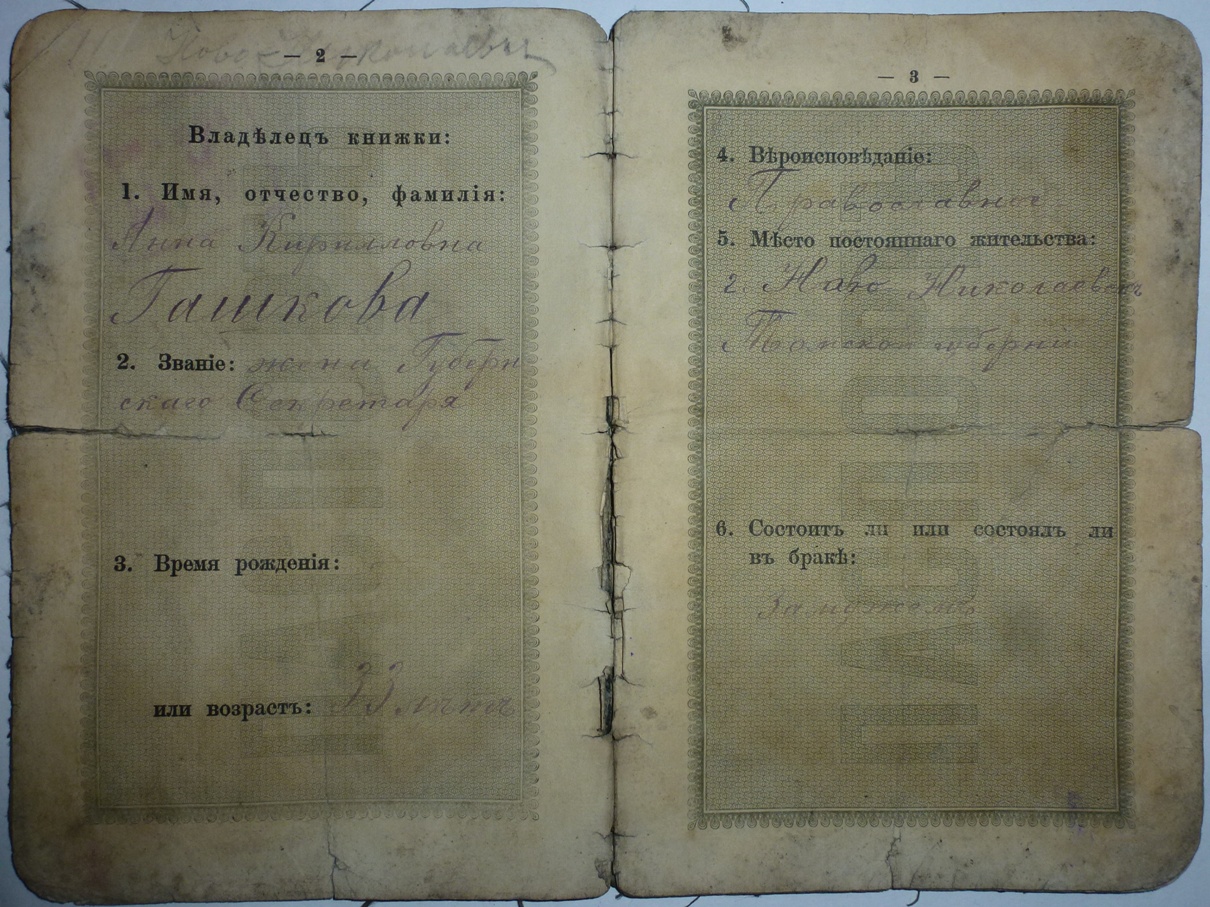 Ново-Николаевск
— 2 —
Владѣлецъ книжки:
1. Имя, отчество, фамилія:
Анна Кирилловна
Гашкова
2. Званіе: жена Губерн
скаго Секретаря
3. Время рожденія:
или возрастъ: 33 лѣтъ
— 3 —
4. Вѣроисповѣданіе:
Православное
5. Мѣсто постояннаго жительства:
г. Ново Николаевскъ
Томской губерніи
6. Состоитъ ли или состоялъ ли
въ бракѣ:
замужемъ